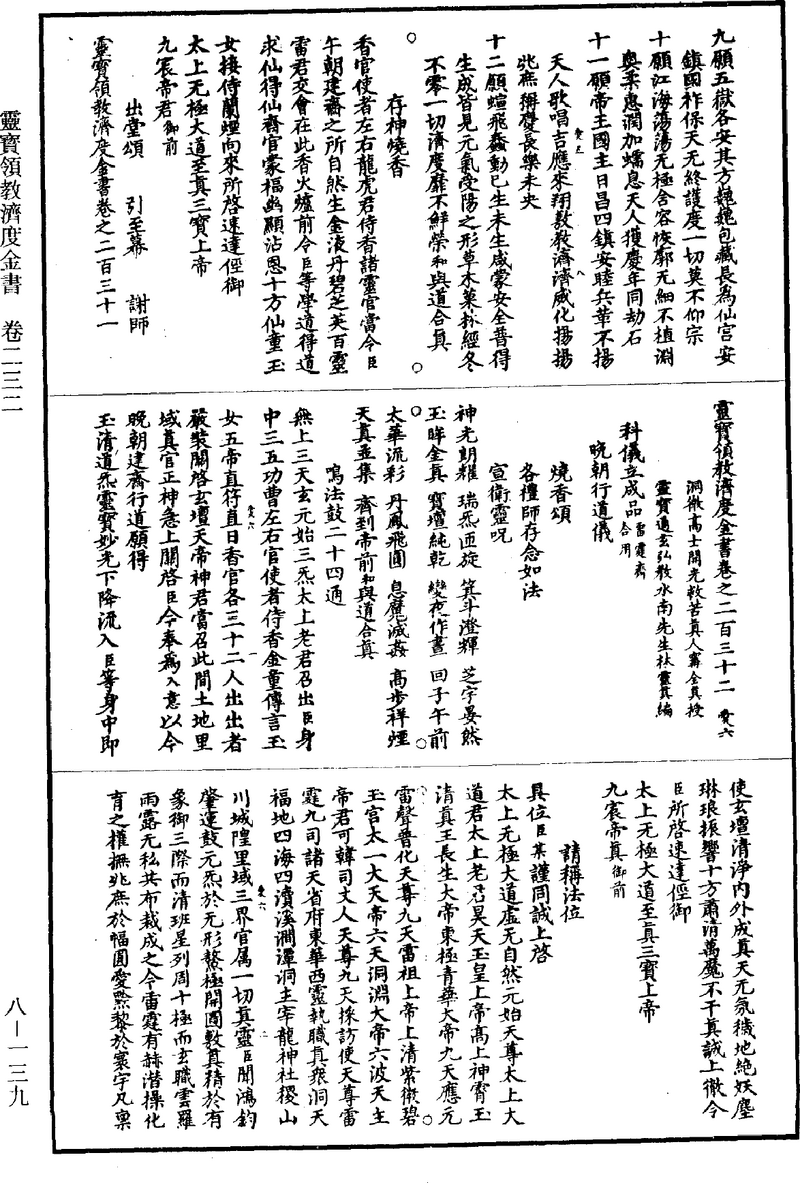 靈寶領教濟度金書　卷二三二
八—一三九
九願五嶽各安其方巍巍包藏長為仙宮安
鎮國祚保天无終護度一切莫不仰宗
十願江海蕩蕩无極含容恢廓无細不植淵
奥柔惠潤加蠕息天人獲慶年同劫石
十一願帝王國主日昌四鎮安睦兵革不揚
天人歌唱吉應來翔教教濟濟威化揚揚
兆庶稱慶長樂未央
十二願蝖飛蠢動已生未生咸蒙安全普得
生成皆見元氣受陽之形草木菓林經冬
不零一切濟度靡不鮮榮和與道合真
存神燒香
香官使者左右龍虎君侍香諸靈官當今臣
午朝建齋之所自然生金液丹碧芝英百靈
雷君交會在此香火爐前今臣等學道得道
求仙得仙齋官蒙福幽顯沾恩十方仙童玉
女接侍蘭煙向來所啓速達徑御
太上无極大道至真三寶上帝
九宸帝君御前
出堂頌　引至幕　謝師
靈寶領教濟度金書卷之二百三十一
靈寶領教濟度金書卷之二百三十二　愛六
洞微高士開光救苦真人甯全真授
靈寶通玄弘教水南先生林靈真編
科儀立成品雷霆齋合用
晚朝行道儀
燒香頌
各禮師存念如法
宣衛靈呪
神光朗耀　瑞炁匝旋　箕斗澄輝　芝宇晏然
玉眸金真　寶壇純乾　變夜作晝　回子午前
太華流彩　丹鳳飛圓　息魔滅姦　高步祥煙
天真並集　齊到帝前和與道合真
鳴法鼓二十四通
無上三天玄元始三炁太上老君召出臣身
中三五功曹左右官使者侍香金童傳言玉
女五帝直符直日香官各三十二人出出者
嚴裝關啓玄壇天帝神君當召此間土地里
域真官正神急上關啓臣今奉為入意以今
晚朝建齋行道願得
玉清道炁靈寶妙光下降流入臣等身中即
使玄壇清淨內外成真天无氛穢地絶妖塵
琳琅振響十方肅清萬魔不干真誠上徹令
臣所啓速達徑御
太上无極大道至真三寶上帝
九宸帝真御前
請稱法位
具位臣某謹同誠上啓
太上无極大道虛无自然元始天尊太上大
道君太上老君昊天玉皇上帝高上神霄玉
清真王長生大帝東極青華大帝九天應元
雷聲普化天尊九天雷祖上帝上清紫微碧
玉宮太一大天帝六天洞淵大帝六波天主
帝君可韓司丈人天尊九天採訪使天尊雷
霆九司諸天省府東華西靈執職真衆洞天
福地四海四瀆溪澗潭洞主宰龍神社稷山
川城隍里域三界官屬一切真靈臣聞鴻鈞
肇運鼓元炁於无形鰲極開圖數真精於有
象御三際而清班星列周十極而玄職雲羅
雨露无私共布裁成之令雷霆有赫潛操化
育之權撫兆庶於幅圓愛黔黎於寰宇凡禀